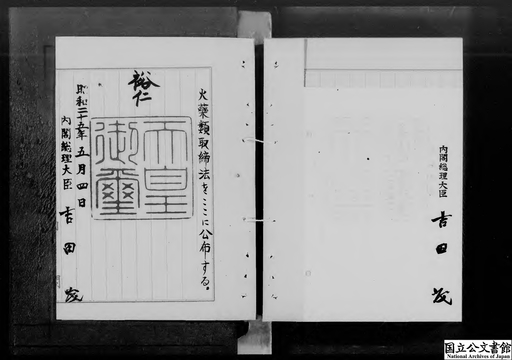 内閣総理大臣 吉田茂
火薬類取締法をここに公布する。
裕仁
天皇御璽
昭和二十五年五月四日
内閣総理大臣 吉田茂
国立公文書館
National Archives of Japan